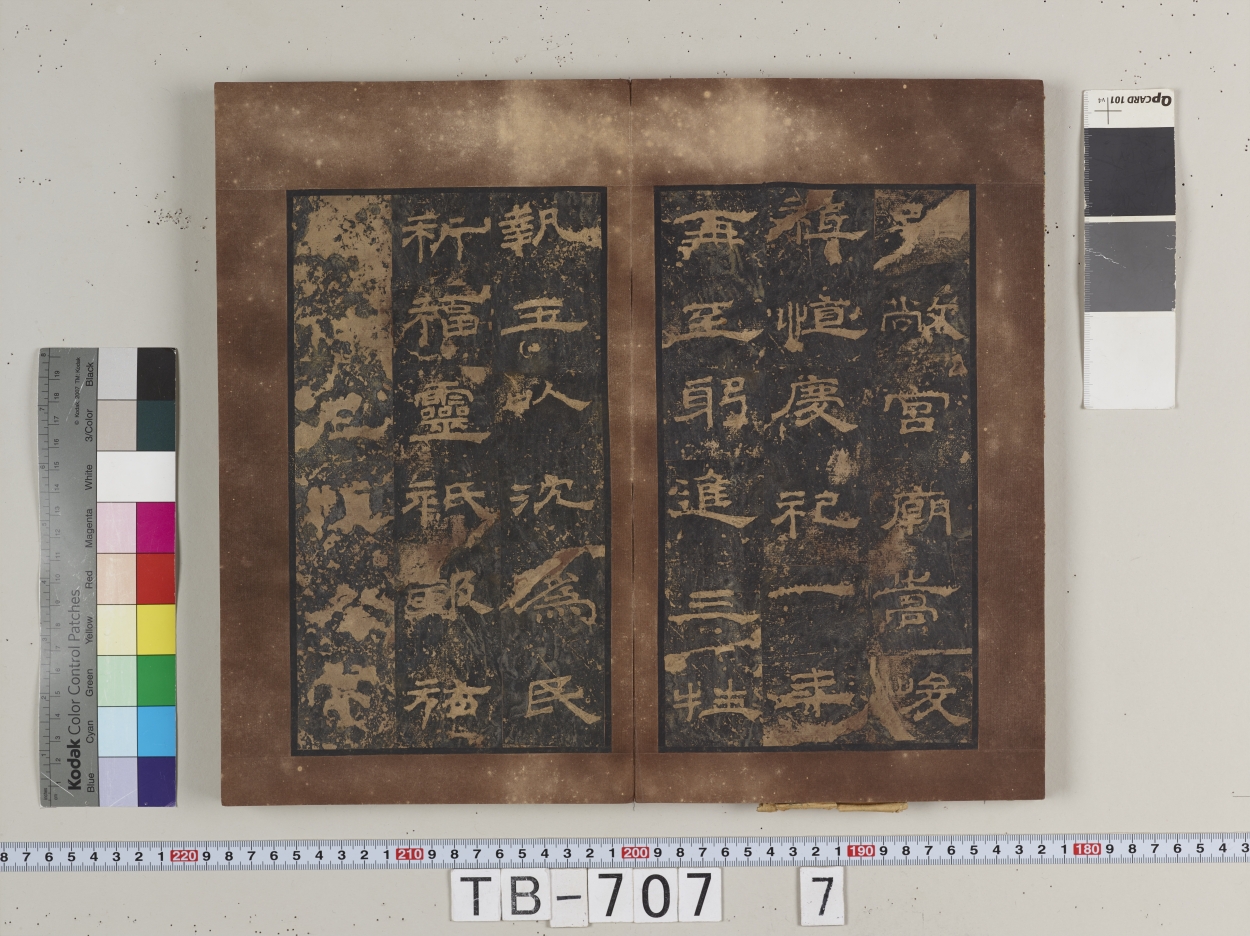 敞宮廟嵩峻
祗慎慶祀一年
再至躬進三牲
執玉以沈為民
祈福靈祇報祐
Kodak Color Control Patches
© Kodak, 2007 TM: Kodak
Blue Cyan Green Yellow Red Magenta White 3/Color Black
QPCARD 101 v4
8 7 6 5 4 3 2 1 220 9 8 7 6 5 4 3 2 1 210 9 8 7 6 5 4 3 2 1 200 9 8 7 6 5 4 3 2 1 190 9 8 7 6 5 4 3 2 1 180 9 8 7 6 5 4 3
TB-707 7